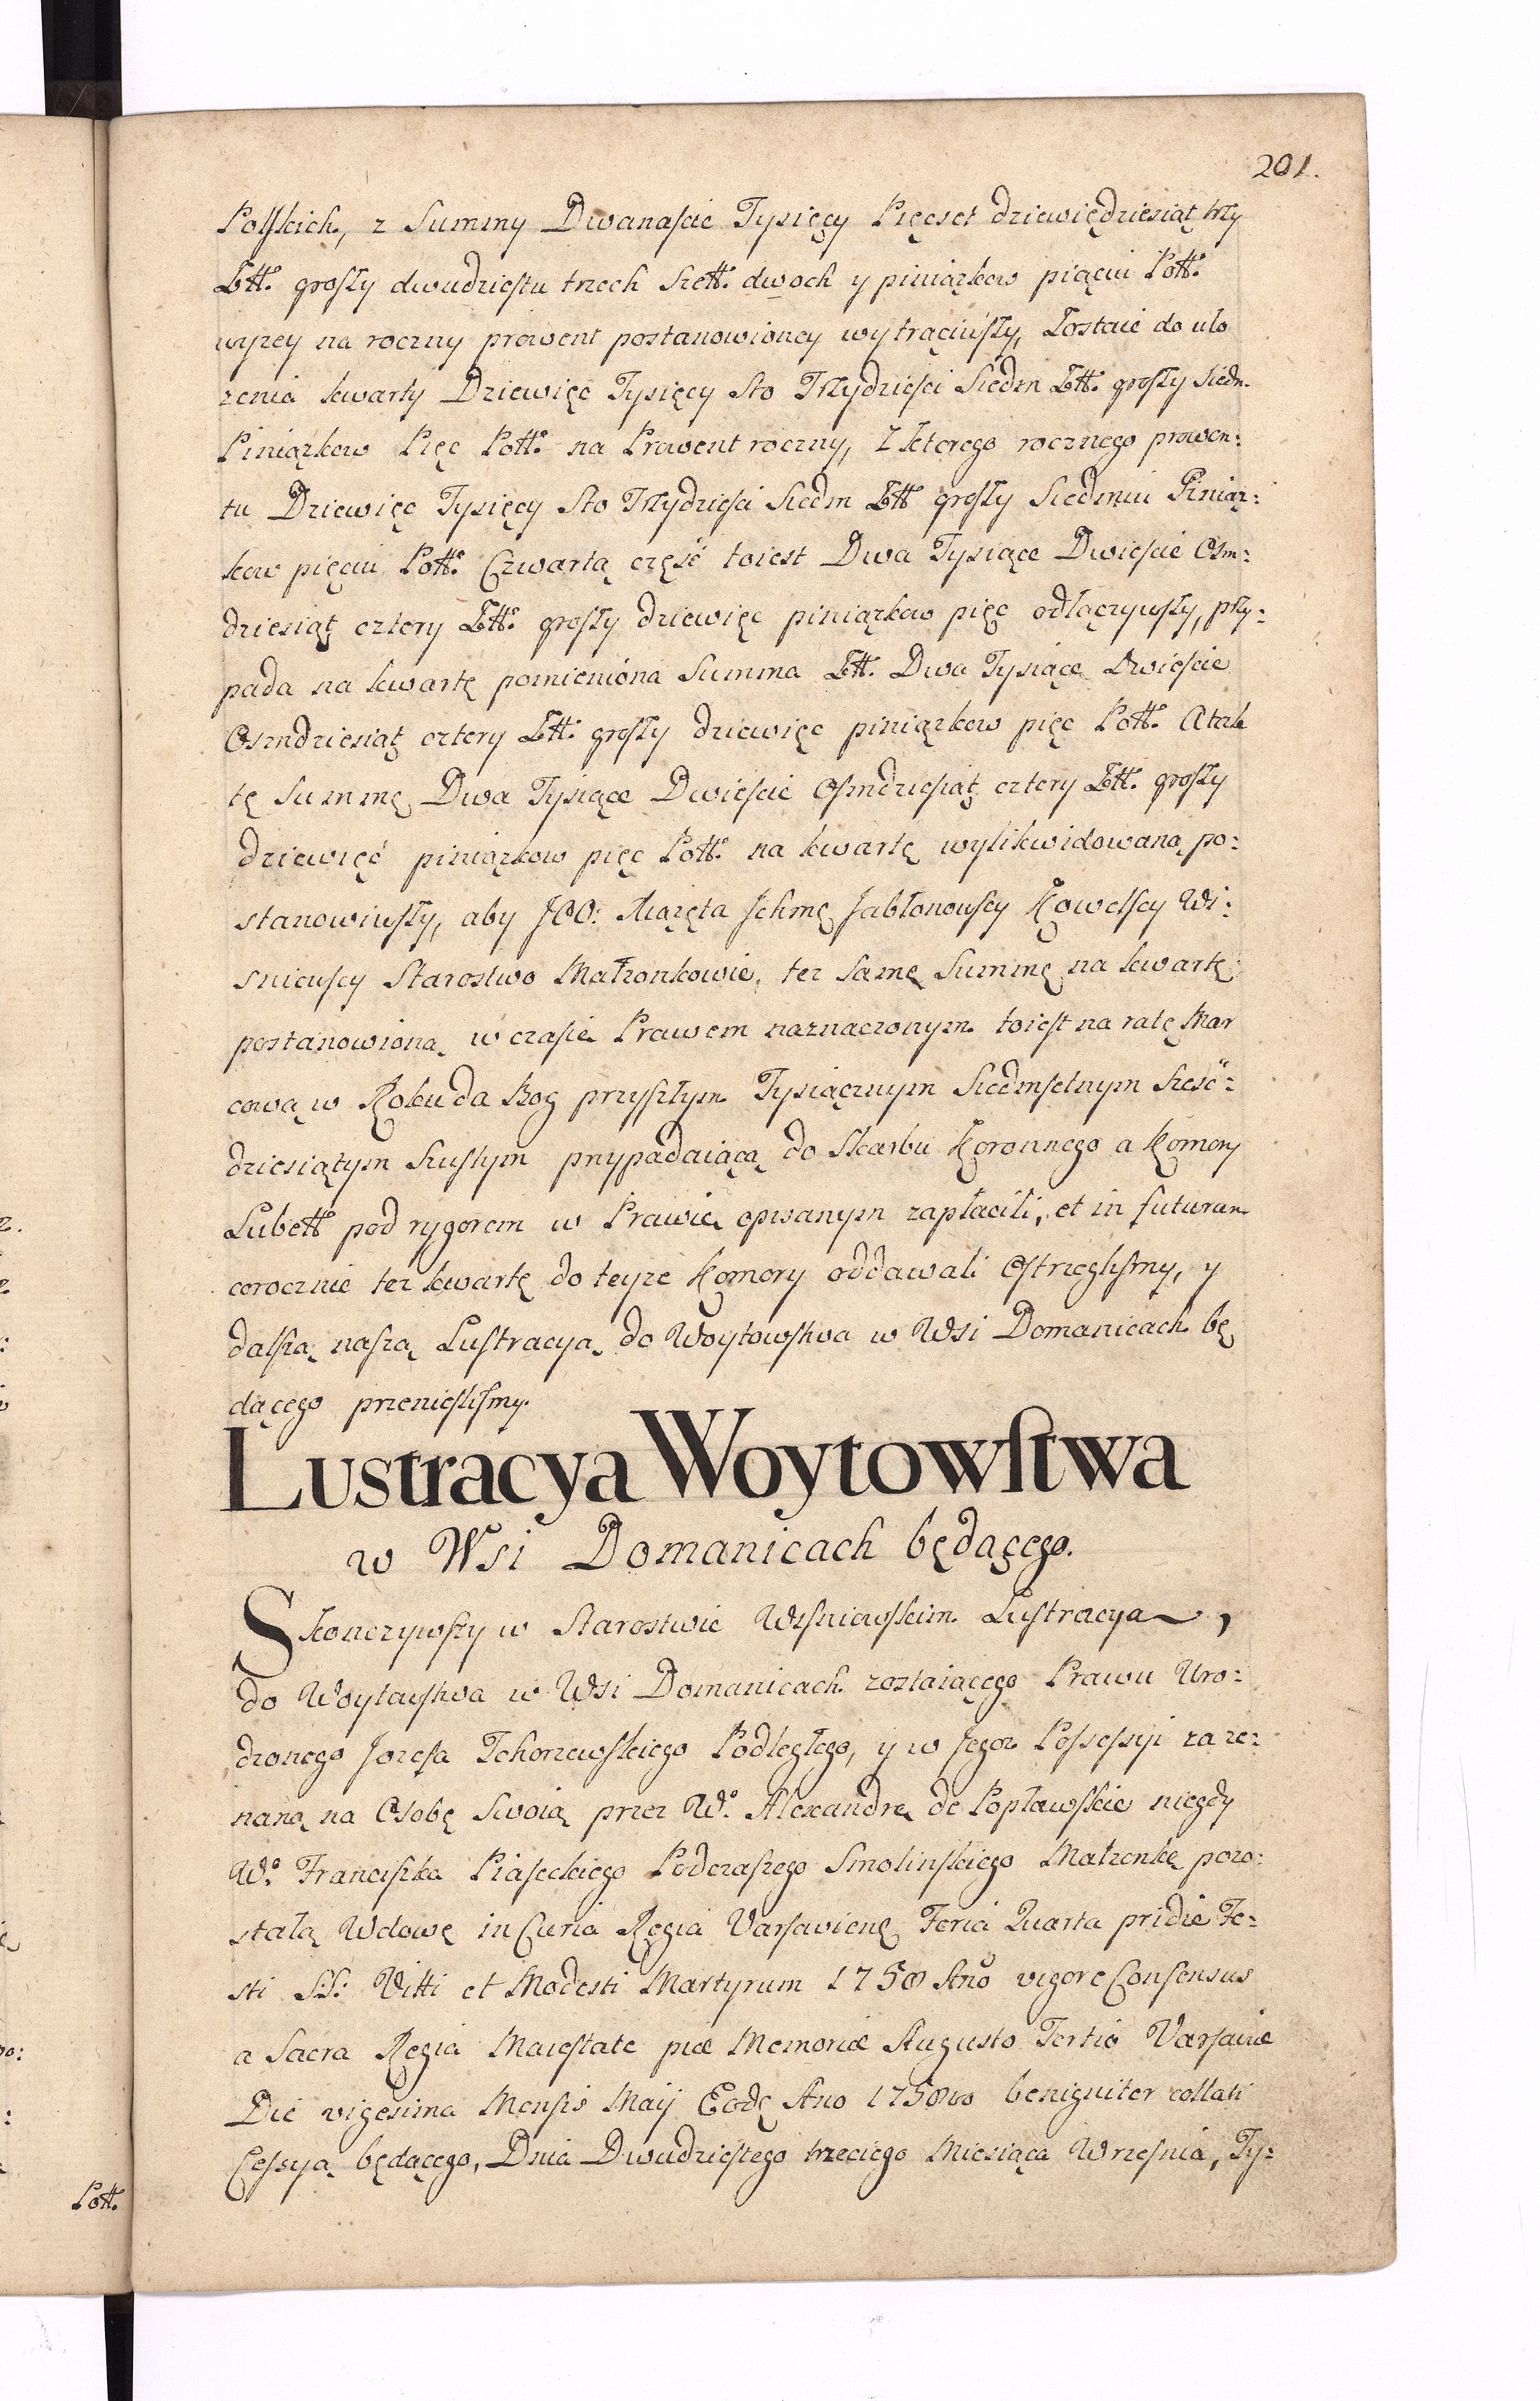 201.
Polskich, z Summy Dwanaście Tysięcy Pięcset dziewiędziesiąt trzy
Złł. groszy dwudziestu trzech Szełł. dwoch y piniązkow piąciu Połł.
wyzey na roczny prowent postanowioney wytrąciwszy, Zostaie do ulo
zenia kwarty Dziewięc Tysięcy Sto Trzydzieści Siedm Złł. groszy Siedm
Piniązkow Pięc Połł. na Prowent roczny, Z ktorego rocznego prowen:
tu Dziewięc Tysięcy Sto Trzydzieści Siedm Złł groszy Siedmiu Piniąz:
kow pięciu Połł. Czwartą część toiest Dwa Tysiące Dwieście Osm:
dziesiąt cztery Złł. groszy dziewięc piniązkow pięc odłączywszy, przy:
pada na kwartę pomieniona Summa Złł. Dwa Tysiące Dwieście
Osmdziesiąt cztery Złł. groszy dziewięc piniązkow pięc Połł. A tak
tę Summę Dwa Tysiące Dwieście Osmdziesiąt cztery Złł. groszy
dziewięć piniązkow pięc Połł. na kwartę wylikwidowaną po:
stanowiwszy, aby JOO: Xiązęta Jchmę Jabłonowscy Kowelscy Wi:
sniewscy Starostwo Małzonkowie, tez Samę Summę na kwartę
postanowioną w czasie Prawem naznaczonym toiest na ratę Mar
cową w Roku da Bog przyszłym Tysiącznym Siedmsetnym Sześć:
dziesiątym Szustym przypadaiącą do Skarbu Koronnego a Komory
Lubełł pod rygorem w Prawie opisanym zapłacili, et in futurum
corocznie tez kwartę do teyze Komory oddawali Ostrzeglismy, y
dalszą naszą Lustracyą do Woytowstwa w Wsi Domanicach bę
dącego przenieślismy.
Lustracya Woytowstwa
w Wsi Domanicach będącego.
Skonczywszy w Starostwie Wisniewskim Lustracya,
do Woytowstwa w Wsi Domanicach zostaiącego Prawu Uro:
dzonego Jozefa Tchorzewskiego Podległego, y w Jego Possessyi za ze:
naną na Osobę Swoią przez W. Alexandrę de Popławskie niegdy
W. Franciszka Piaseckiego Podczaszego Smolinskiego Małzonkę pozo:
stałą Wdowę in Curia Regia Varsavienę Feria Quarta pridie Fe:
sti SS: Vitti et Modesti Martyrum 1758 Ano vigore Consensus
a Sacra Regia Maiestate piæ Memoriæ Augusto Tertio Varsaviæ
Die vigesima Mensis Maij Eodę Ano 1758vo benigniter collati
Cessyą będącego, Dnia Dwudziestego trzeciego Miesiąca Wrzesnia, Ty:
Połł.